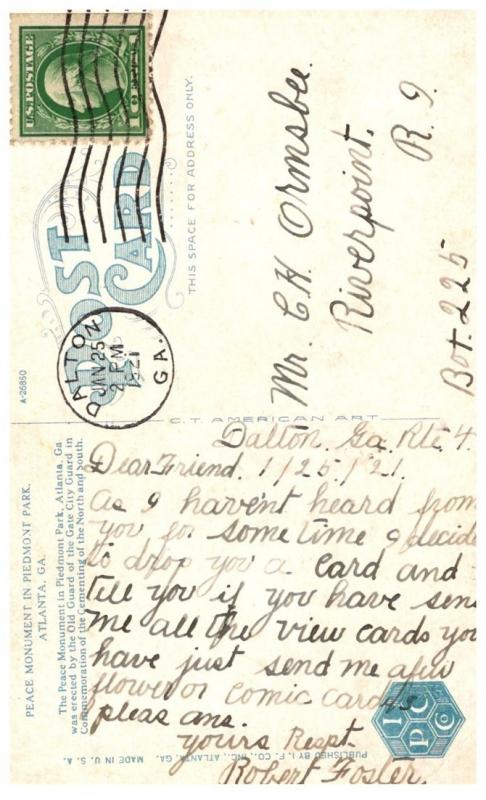 U.S. POSTAGE
1 CENT 1
POST CARD
THIS SPACE FOR ADDRESS ONLY.
DALTON
JAN 25
2 PM
1921
GA.
Mr. C H Ormsbee.
Riverpoint,
R. I.
Box. 225
A-26850
C.T. AMERICAN ART
PEACE MONUMENT IN PIEDMONT PARK,
ATLANTA, GA.
The Peace Monument in Piedmont Park, Atlanta, Ga
was erected by the Old Guard of the Gate City Guard in
Commemoration of the Cementing of the North and South.
Dalton. Ga Rte 4.
Dear Friend. 1/25/21.
As I haven't heard from
you for some time I decide
to drop you a card and
tell you if you have sent
me all the view cards you
have just send me a few
flower or comic cards
pleas ans.
yours Respt
Robert Foster
PUBLISHED BY I. F. CO., INC., ATLANTA, GA. MADE IN U. S. A.
I P C Co